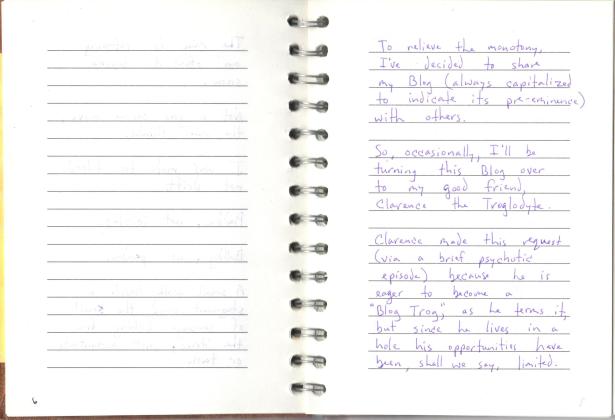 To relieve the monotony,
I've decided to share
my Blog (always capitalized
to indicate its pre-eminence)
with others.
So, occasionally, I'll be
turning this Blog over
to my good friend,
Clarence the Troglodyte.
Clarence made this request
(via a brief psychotic
episode) because he is
eager to become a
"Blog Trog," as he terms it,
but since he lives in a
hole his opportunities have
been, shall we say, limited.